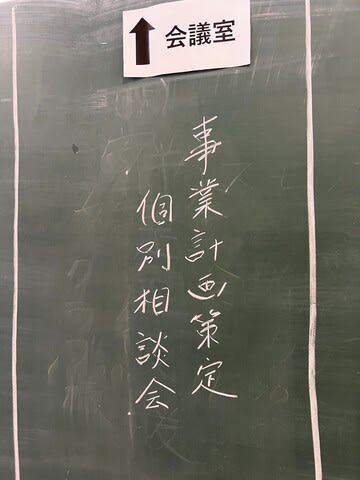 会議室
事業計画策定
個別相談会